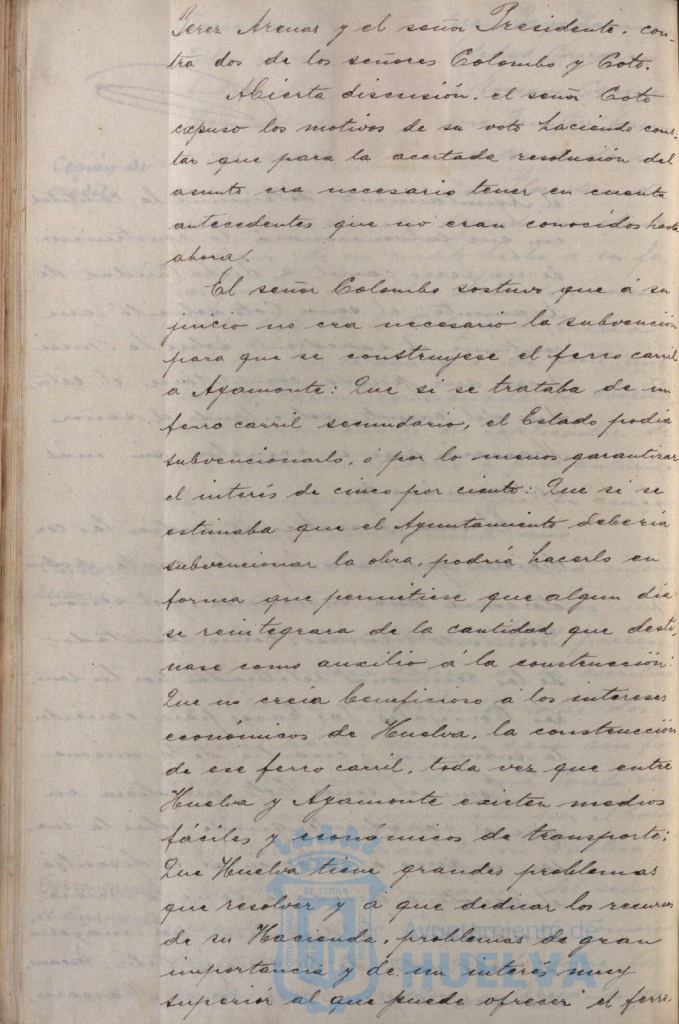 Perez Arenas y el señor Presidente, con-
tra dos de los señores Colombo y Coto.
Abierta discusión, el señor Coto
expuso los motivos de su voto haciendo cons-
tar que para la acertada resolusión del
asunto era necesario tener en cuenta
antecedentes que no eran conocidos hasta
ahora.
El señor Colombo sostuvo que á su
juicio no era necesario la subvención
para que se construyese el ferro carril
a Ayamonte: Que si se trataba de un
ferro carril secundario, el Estado podía
subvencionarlo, ó por lo menos garantizar
el interés de cinco por ciento: Que si se
estimaba que el Ayuntamiento debería
subvencionar la obra, podría hacerlo en
forma que permitiese que algun día
se reintegrara de la cantidad que desti-
nase como auxilio á la construcción:
Que no creía beneficioso á los intereses
económicos de Huelva, la construcción
de ese ferro carril, toda vez que entre
Huelva y Ayamonte existen medios
fáciles y económicos de transporte:
Que Huelva tiene grandes problemas
que resolver y á que dedicar los recursos
de su Hacienda, problemas de gran
importancia y de un interés muy
superior al que puede ofrecer el ferro
Ayuntamiento de
HUELVA